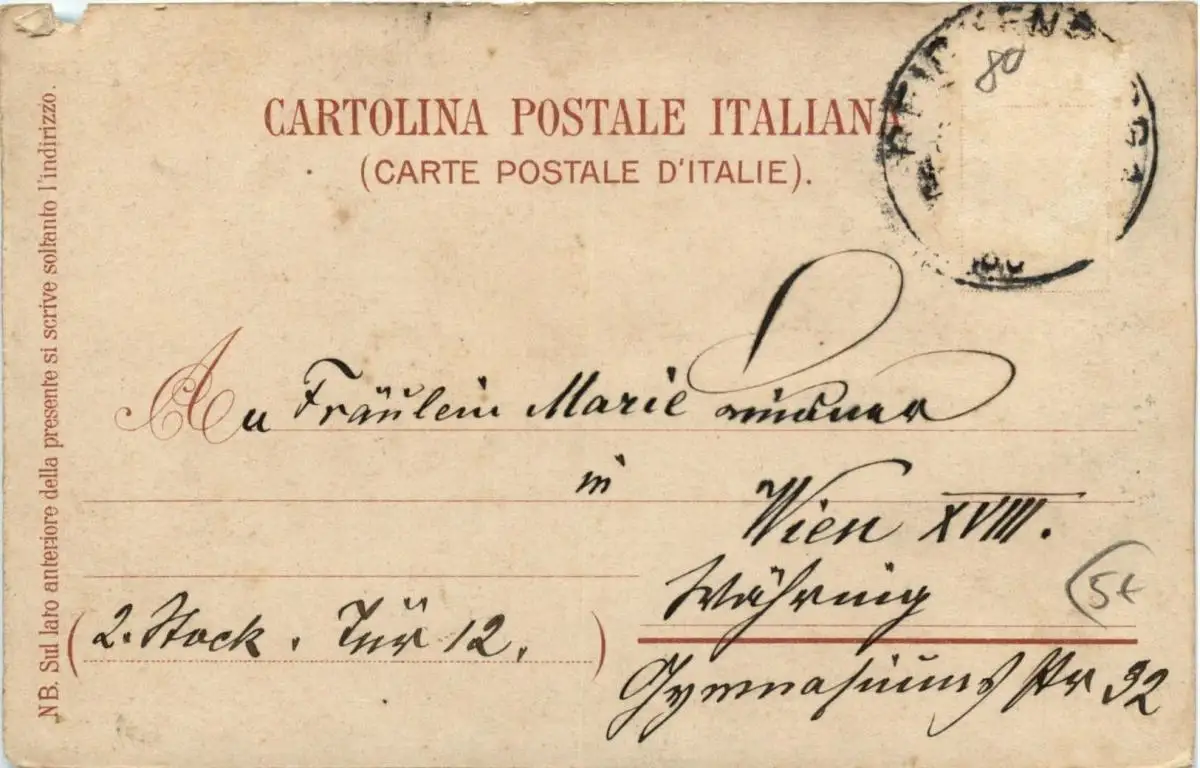 80
CARTOLINA POSTALE ITALIANA
(CARTE POSTALE D'ITALIE).
NB. Sul lato anteriore della presente si scrive soltanto l'indirizzo.
An Fräulein Marie
in
Wien XVIII.
Währing
(2. Stock. Tür 12.)
Gymnasiums Str 32
5€